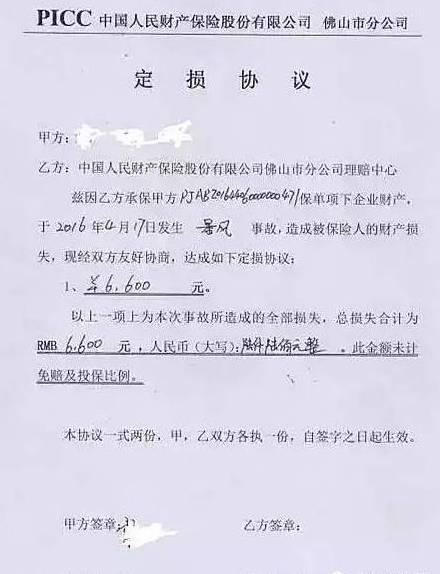 PICC 中国人民财产保险股份有限公司 佛山市分公司
定损协议
甲方:
乙方:中国人民财产保险股份有限公司佛山市分公司理赔中心
兹因乙方承保甲方PJAB20164406000000471保单项下企业财产,
于2016年4月17日发生 暴风 事故,造成被保险人的财产损
失,现经双方友好协商,达成如下定损协议:
1、 6,600 元。
以上一项上为本次事故所造成的全部损失,总损失合计为
RMB 6,600 元,人民币(大写):陆仟陆佰元整。此金额未计
免赔及投保比例。
本协议一式两份,甲,乙双方各执一份,自签字之日起生效。
甲方签章: 乙方签章: